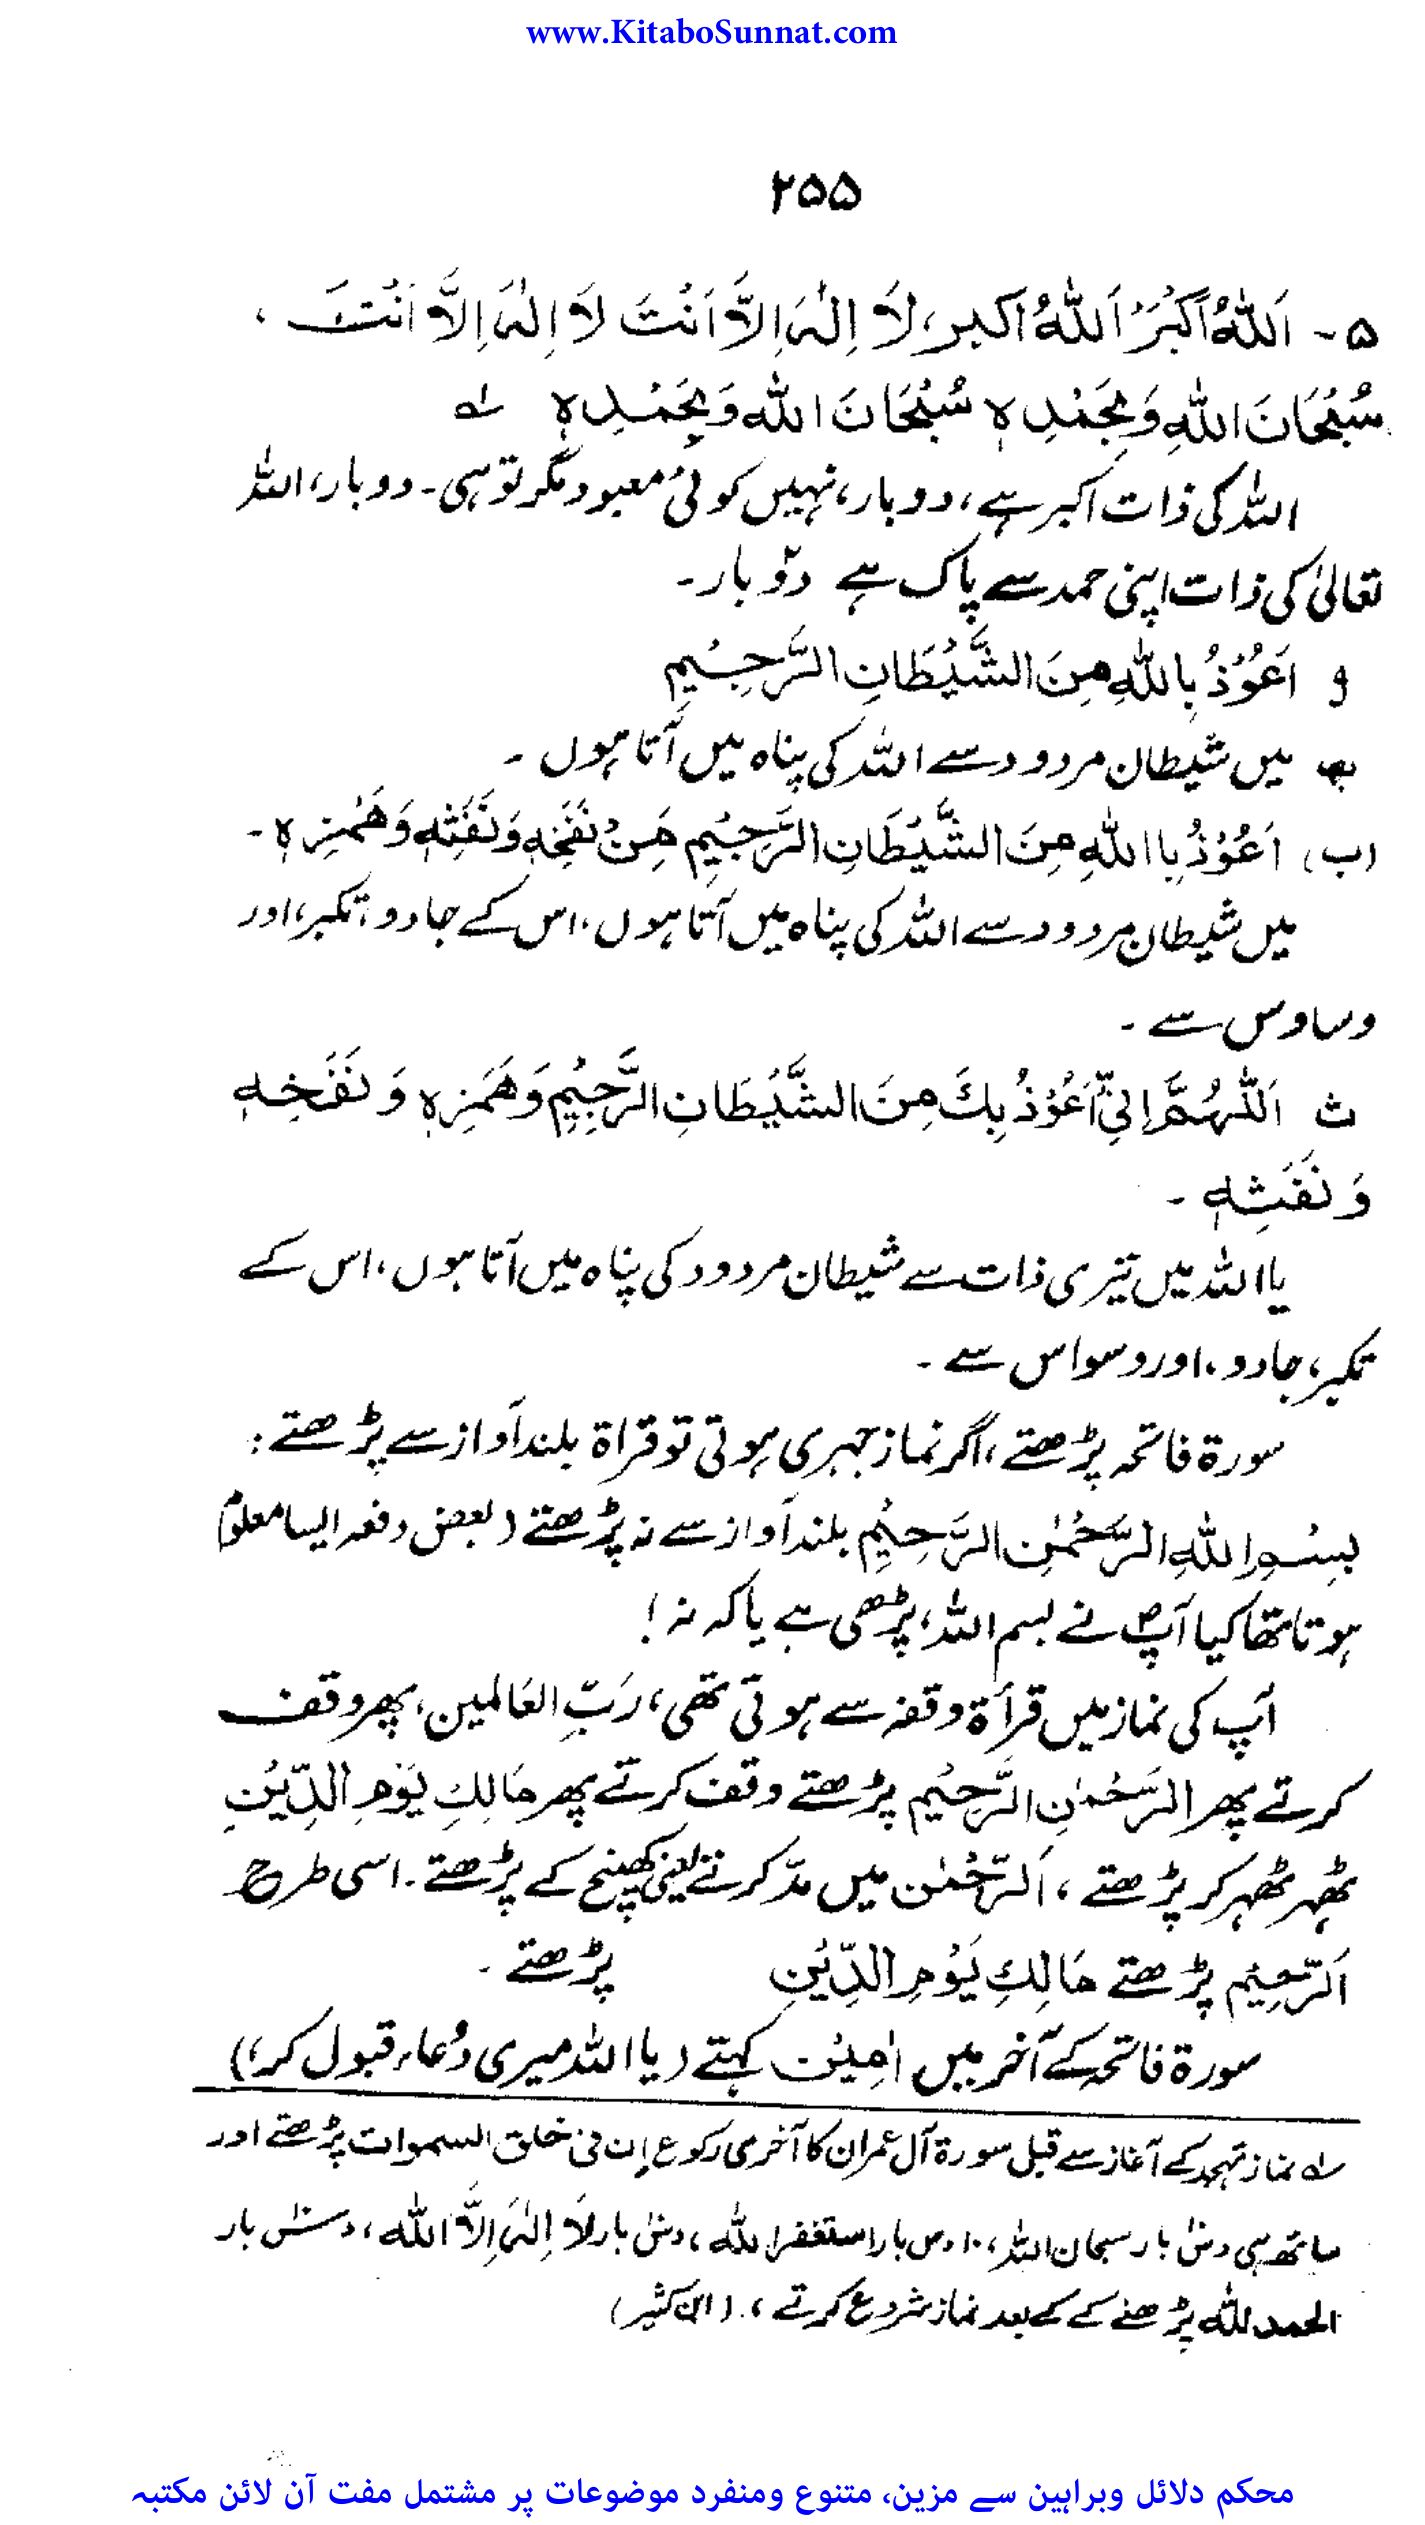 www.KitaboSunnat.com
۲۵۵
۵ - اَللّٰهُ اَكْبَرُ اَللّٰهُ اَكبر، لَا اِلٰهَ اِلَّا اَنْتَ لَا اِلٰهَ اِلَّا اَنْتَ ،
سُبْحَانَ اللّٰهِ وَبِحَمْدِهٖ سُبْحَانَ اللّٰهِ وَبِحَمْدِهٖ ؎۱
اللہ کی ذات اکبر ہے، دو بار، نہیں کوئی معبود مگر تو ہی۔ دو بار، اللہ
تعالیٰ کی ذات اپنی حمد سے پاک ہے دو بار۔
اَعُوْذُ بِاللّٰهِ مِنَ الشَّيْطَانِ الرَّجِيْمِ
میں شیطان مردود سے اللہ کی پناہ میں آتا ہوں ۔
(ب) اَعُوْذُ بِا اللّٰهِ مِنَ الشَّيْطَانِ الرَّجِيْمِ مِنْ نَفَخِهٖ وَنَفَثِهٖ وَهَمْزِهٖ ۔
میں شیطان مردود سے اللہ کی پناہ میں آتا ہوں، اس کے جادو، تکبر، اور
وساوس سے ۔
ث اَللّٰهُمَّ اِنِّيْ اَعُوْذُ بِكَ مِنَ الشَّيْطَانِ الرَّجِيْمِ وَهَمَزِهٖ وَنَفَخِهٖ
وَنَفَثِهٖ ۔
یا اللہ میں تیری ذات سے شیطان مردود کی پناہ میں آتا ہوں، اس کے
تکبر، جادو، اور وسواس سے ۔
سورۃ فاتحہ پڑھتے، اگر نماز جہری ہوتی تو قراۃ بلند آواز سے پڑھتے :
بِسْمِ اللّٰهِ الرَّحْمٰنِ الرَّحِيْمِ بلند آواز سے نہ پڑھتے (بعض دفعہ ایسا معلوم
ہوتا تھا کیا آپؐ نے بسم اللہ، پڑھی ہے یا کہ نہ!
آپ کی نماز میں قرأۃ وقفہ سے ہوتی تھی، رَبِّ العَالمین، پھر وقف
کرتے پھر الرَّحْمٰنِ الرَّحِيْم پڑھتے وقف کرتے پھر مَالِكِ يَوْمِ الدِّيْنِ
ٹھہر ٹھہر کر پڑھتے ، اَلرَّحْمٰن میں مدّ کرتے یعنی کھینچ کے پڑھتے ۔ اسی طرح
اَلرَّحِيْم پڑھتے مَالِكِ يَوْمِ الدِّيْنِ پڑھتے ۔
سورۃ فاتحہ کے آخر میں اٰمِيْن کہتے (یا اللہ میری دُعاء قبول کر،)
؎۱ نماز تہجد کے آغاز سے قبل سورۃ آل عمران کا آخری رکوع اِن فی خلق السموات پڑھتے اور
ساتھ ہی دس بار سبحان اللہ، ۱۰ دس بار استغفر اللّٰه، دس بار لَا اِلٰهَ اِلَّا اللّٰه، دس بار
الحمد للّٰه پڑھنے کے کے بعد نماز شروع کرتے ، (ابن کثیر)
محکم دلائل وبراہین سے مزین، متنوع ومنفرد موضوعات پر مشتمل مفت آن لائن مکتبہ